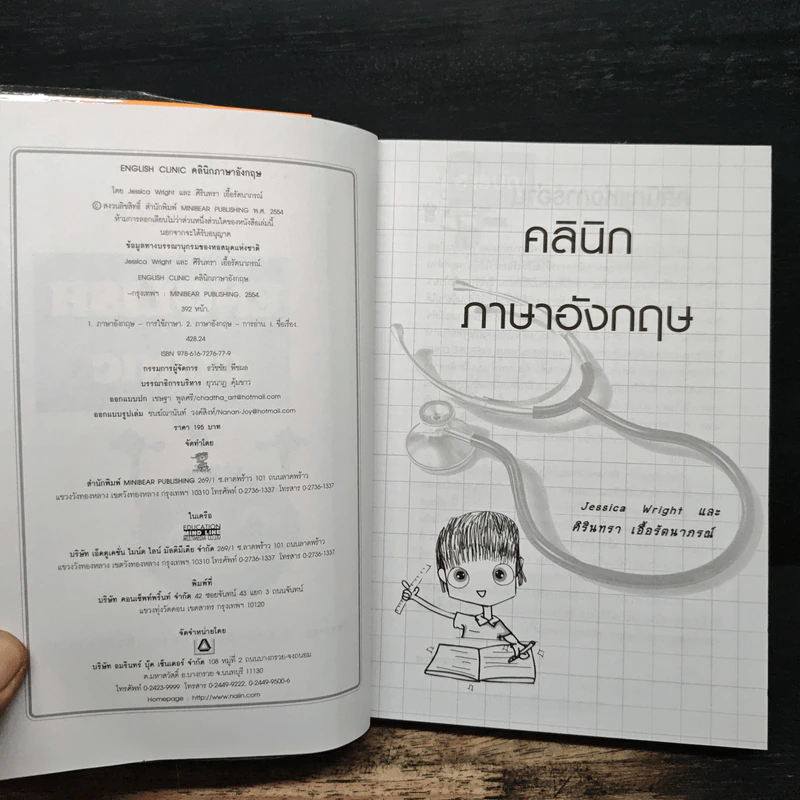 ENGLISH CLINIC คลินิกภาษาอังกฤษ
โดย Jessica Wright และ ศิรินทรา เอื้อรัตนาภรณ์
© สงวนลิขสิทธิ์ สำนักพิมพ์ MINIBEAR PUBLISHING พ.ศ. 2554
ห้ามการลอกเลียนไม่ว่าส่วนหนึ่งส่วนใดของหนังสือเล่มนี้
นอกจากจะได้รับอนุญาต
ข้อมูลทางบรรณานุกรมของหอสมุดแห่งชาติ
Jessica Wright และ ศิรินทรา เอื้อรัตนาภรณ์.
ENGLISH CLINIC คลินิกภาษาอังกฤษ.
-กรุงเทพฯ : MINIBEAR PUBLISHING, 2554.
392 หน้า.
1. ภาษาอังกฤษ - การใช้ภาษา. 2. ภาษาอังกฤษ - การอ่าน. I. ชื่อเรื่อง.
428.24
ISBN 978-616-7276-77-9
กรรมการผู้จัดการ ธวัชชัย พืชผล
บรรณาธิการบริหาร ยุวนาฏ คุ้มขาว
ออกแบบปก เชษฐา พูลศรี/chadtha_art@hotmail.com
ออกแบบรูปเล่ม ชนฆ์ณานันท์ วงค์สิงห์/Nanan-Joy@hotmail.com
ราคา 195 บาท
จัดทำโดย
สำนักพิมพ์ MINIBEAR PUBLISHING 269/1 ซ.ลาดพร้าว 101 ถนนลาดพร้าว
แขวงวังทองหลาง เขตวังทองหลาง กรุงเทพฯ 10310 โทรศัพท์ 0-2736-1337 โทรสาร 0-2736-1337
ในเครือ
EDUCATION
MIND LINE
MULTIMEDIA CO.,LTD
บริษัท เอ็ดดูเคชั่น ไมน์ด ไลน์ มัลติมีเดีย จำกัด 269/1 ซ.ลาดพร้าว 101 ถนนลาดพร้าว
แขวงวังทองหลาง เขตวังทองหลาง กรุงเทพฯ 10310 โทรศัพท์ 0-2736-1337 โทรสาร 0-2736-1337
พิมพ์ที่
บริษัท คอนเซ็พท์พริ้นท์ จำกัด 42 ซอยจันทน์ 43 แยก 3 ถนนจันทน์
แขวงทุ่งวัดดอน เขตสาทร กรุงเทพฯ 10120
จัดจำหน่ายโดย
บริษัท อมรินทร์ บุ๊ค เซ็นเตอร์ จำกัด 108 หมู่ที่ 2 ถนนบางกรวย-จงถนอม
ต.มหาสวัสดิ์ อ.บางกรวย จ.นนทบุรี 11130
โทรศัพท์ 0-2423-9999 โทรสาร 0-2449-9222, 0-2449-9500-6
Homepage : http://www.naiin.com
คลินิก
ภาษาอังกฤษ
Jessica Wright และ
ศิรินทรา เอื้อรัตนาภรณ์